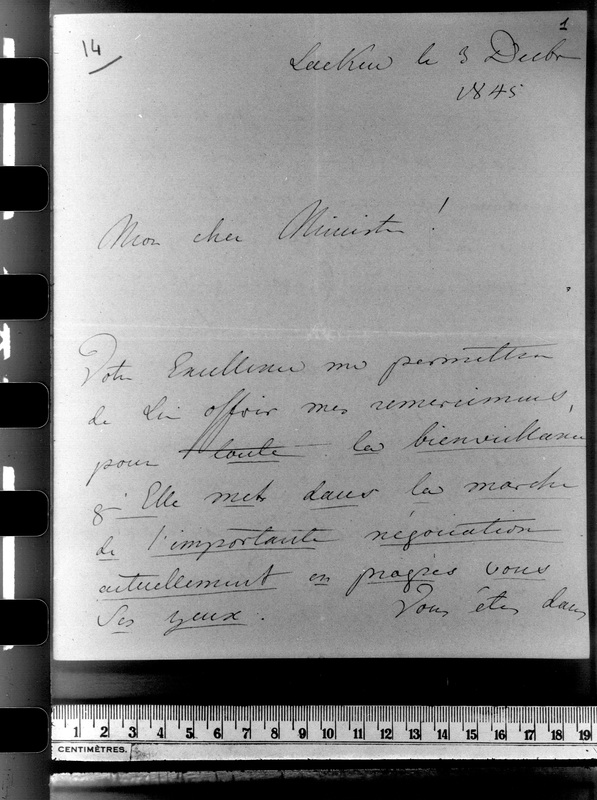 14
1
Laeken le 3 Decbr
1845
Mon cher Ministre !
Votre Excellence me permettra
de Lui offrir mes remerciemens,
pour toute la bienveillance
qu'Elle met dans la marche
de l'importante négociation
actuellement en progrès sous
Ses yeux. Vous êtes dans
1 2 3 4 5 6 7 8 9 10 11 12 13 14 15 16 17 18 19
CENTIMÈTRES.